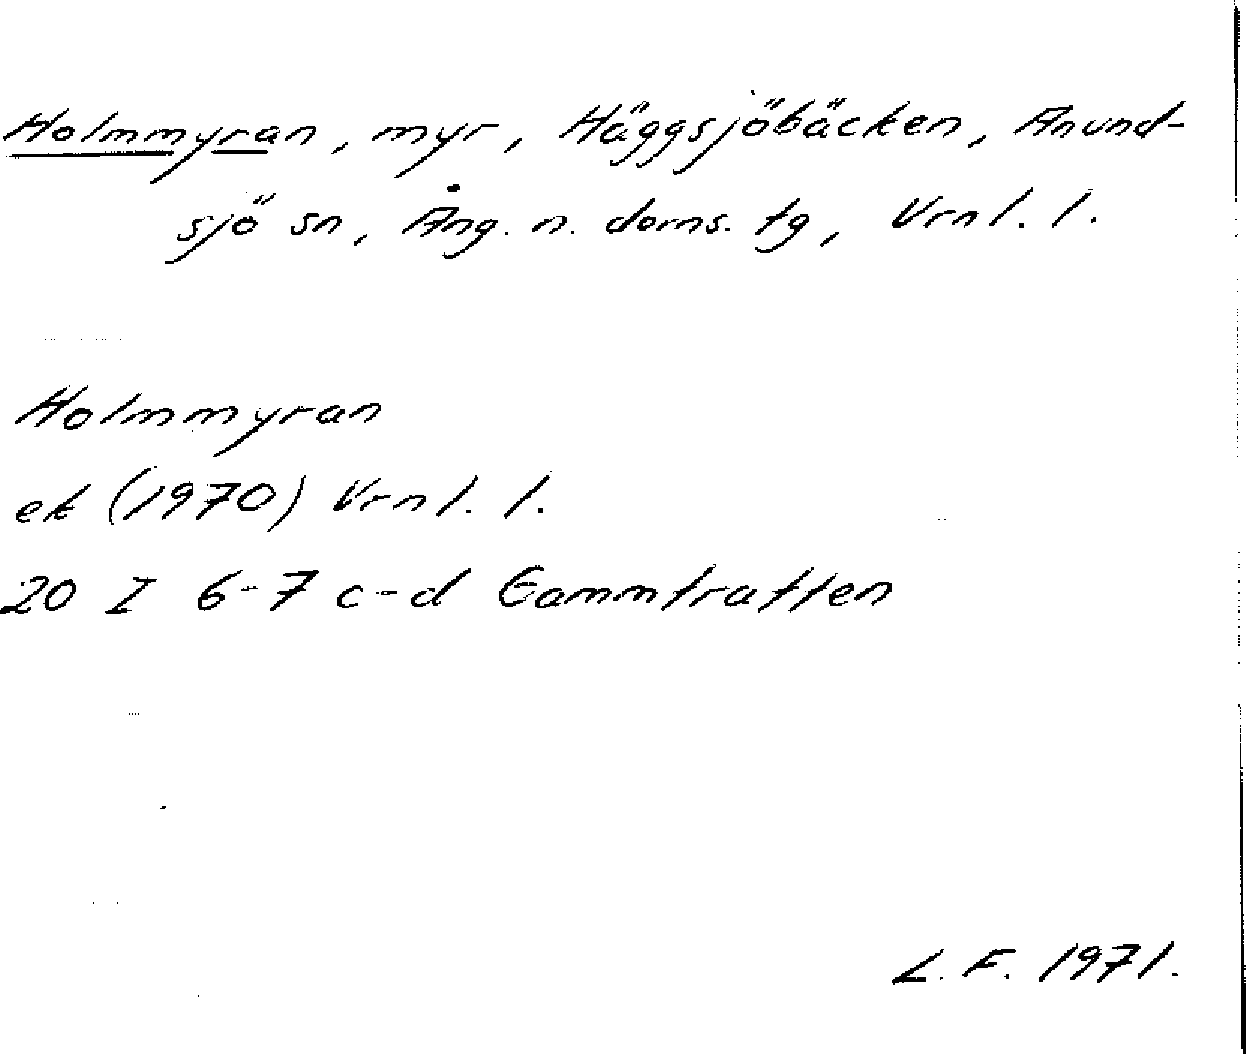 Holmmyran, myr, Häggsjöbäcken, Anund-
sjö sn, Ång. n. doms. tg, Vrnl. l.
Holmmyran
ek (1970) Vrnl. l.
20 I 6-7 c-d Gammtratten
L. F. 1971.